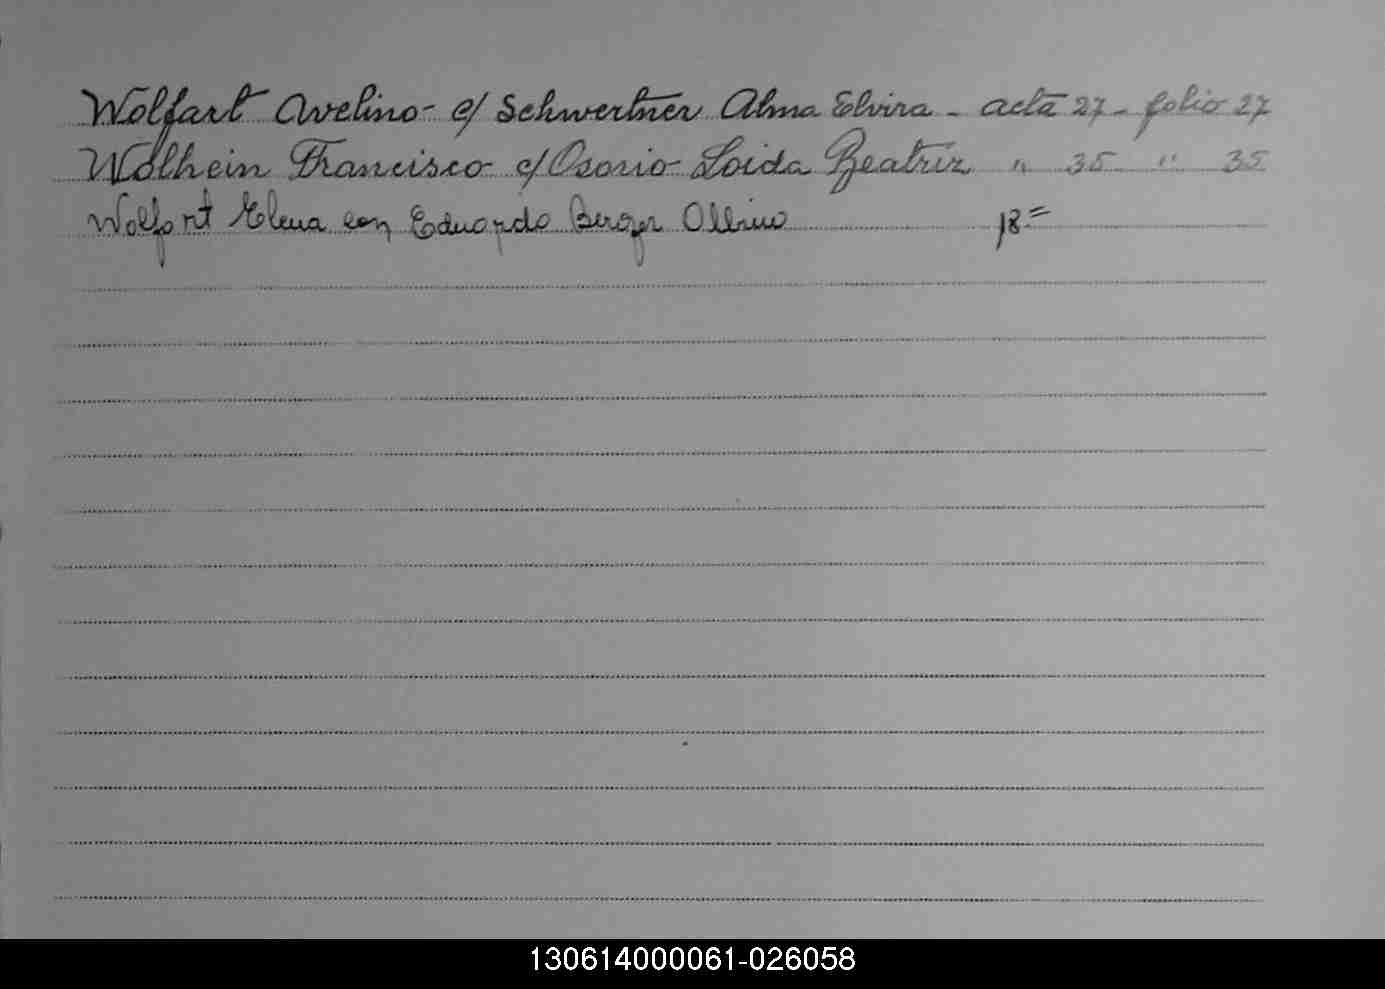 Wolfart Avelino - c/ Schwertner Alma Elvira - acta 27 - folio 27
Wolhein Francisco c/ Osorio Loida Beatriz " 35 " 35
Wolfart Elena con Eduardo Berger 18=
130614000061-026058